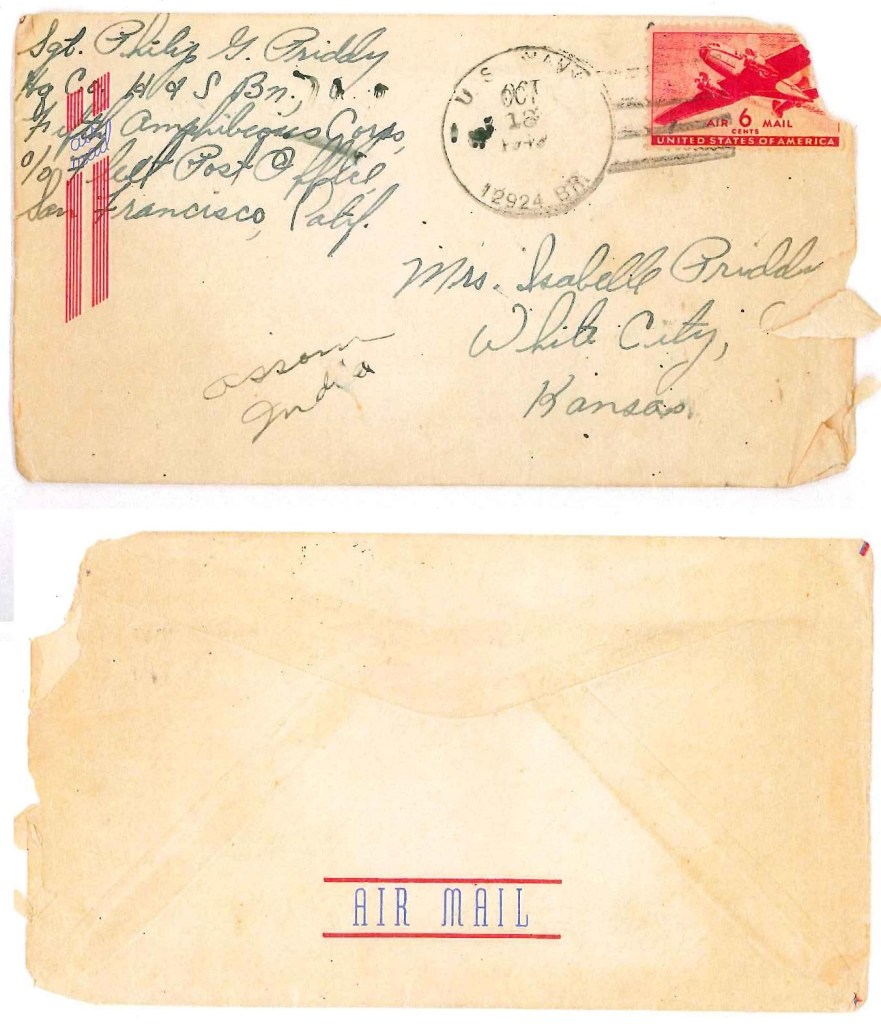 Sgt. Philip G. Priddy
Hq Co. H & S Bn.,
Fifth Amphibious Corps,
c/o Fleet Post Office,
San Francisco, Calif.
U. S. NAVY
OCT
12924 BR.
AIR 6 MAIL
CENTS
UNITED STATES OF AMERICA
Mrs. Isabelle Priddy
White City,
Kansas
assam
India
AIR MAIL